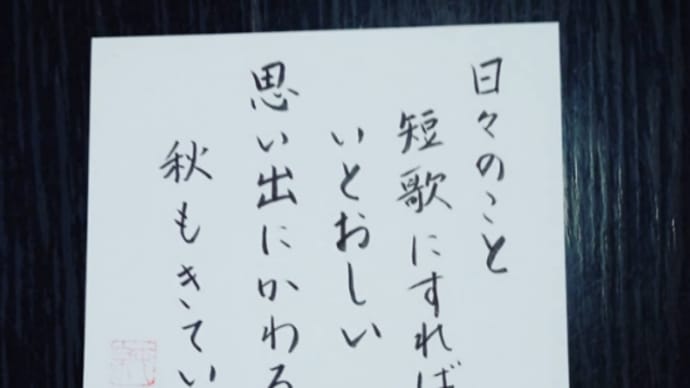 日々のこと
短歌にすれば
いとおしい
思い出にかわる
秋もきてい